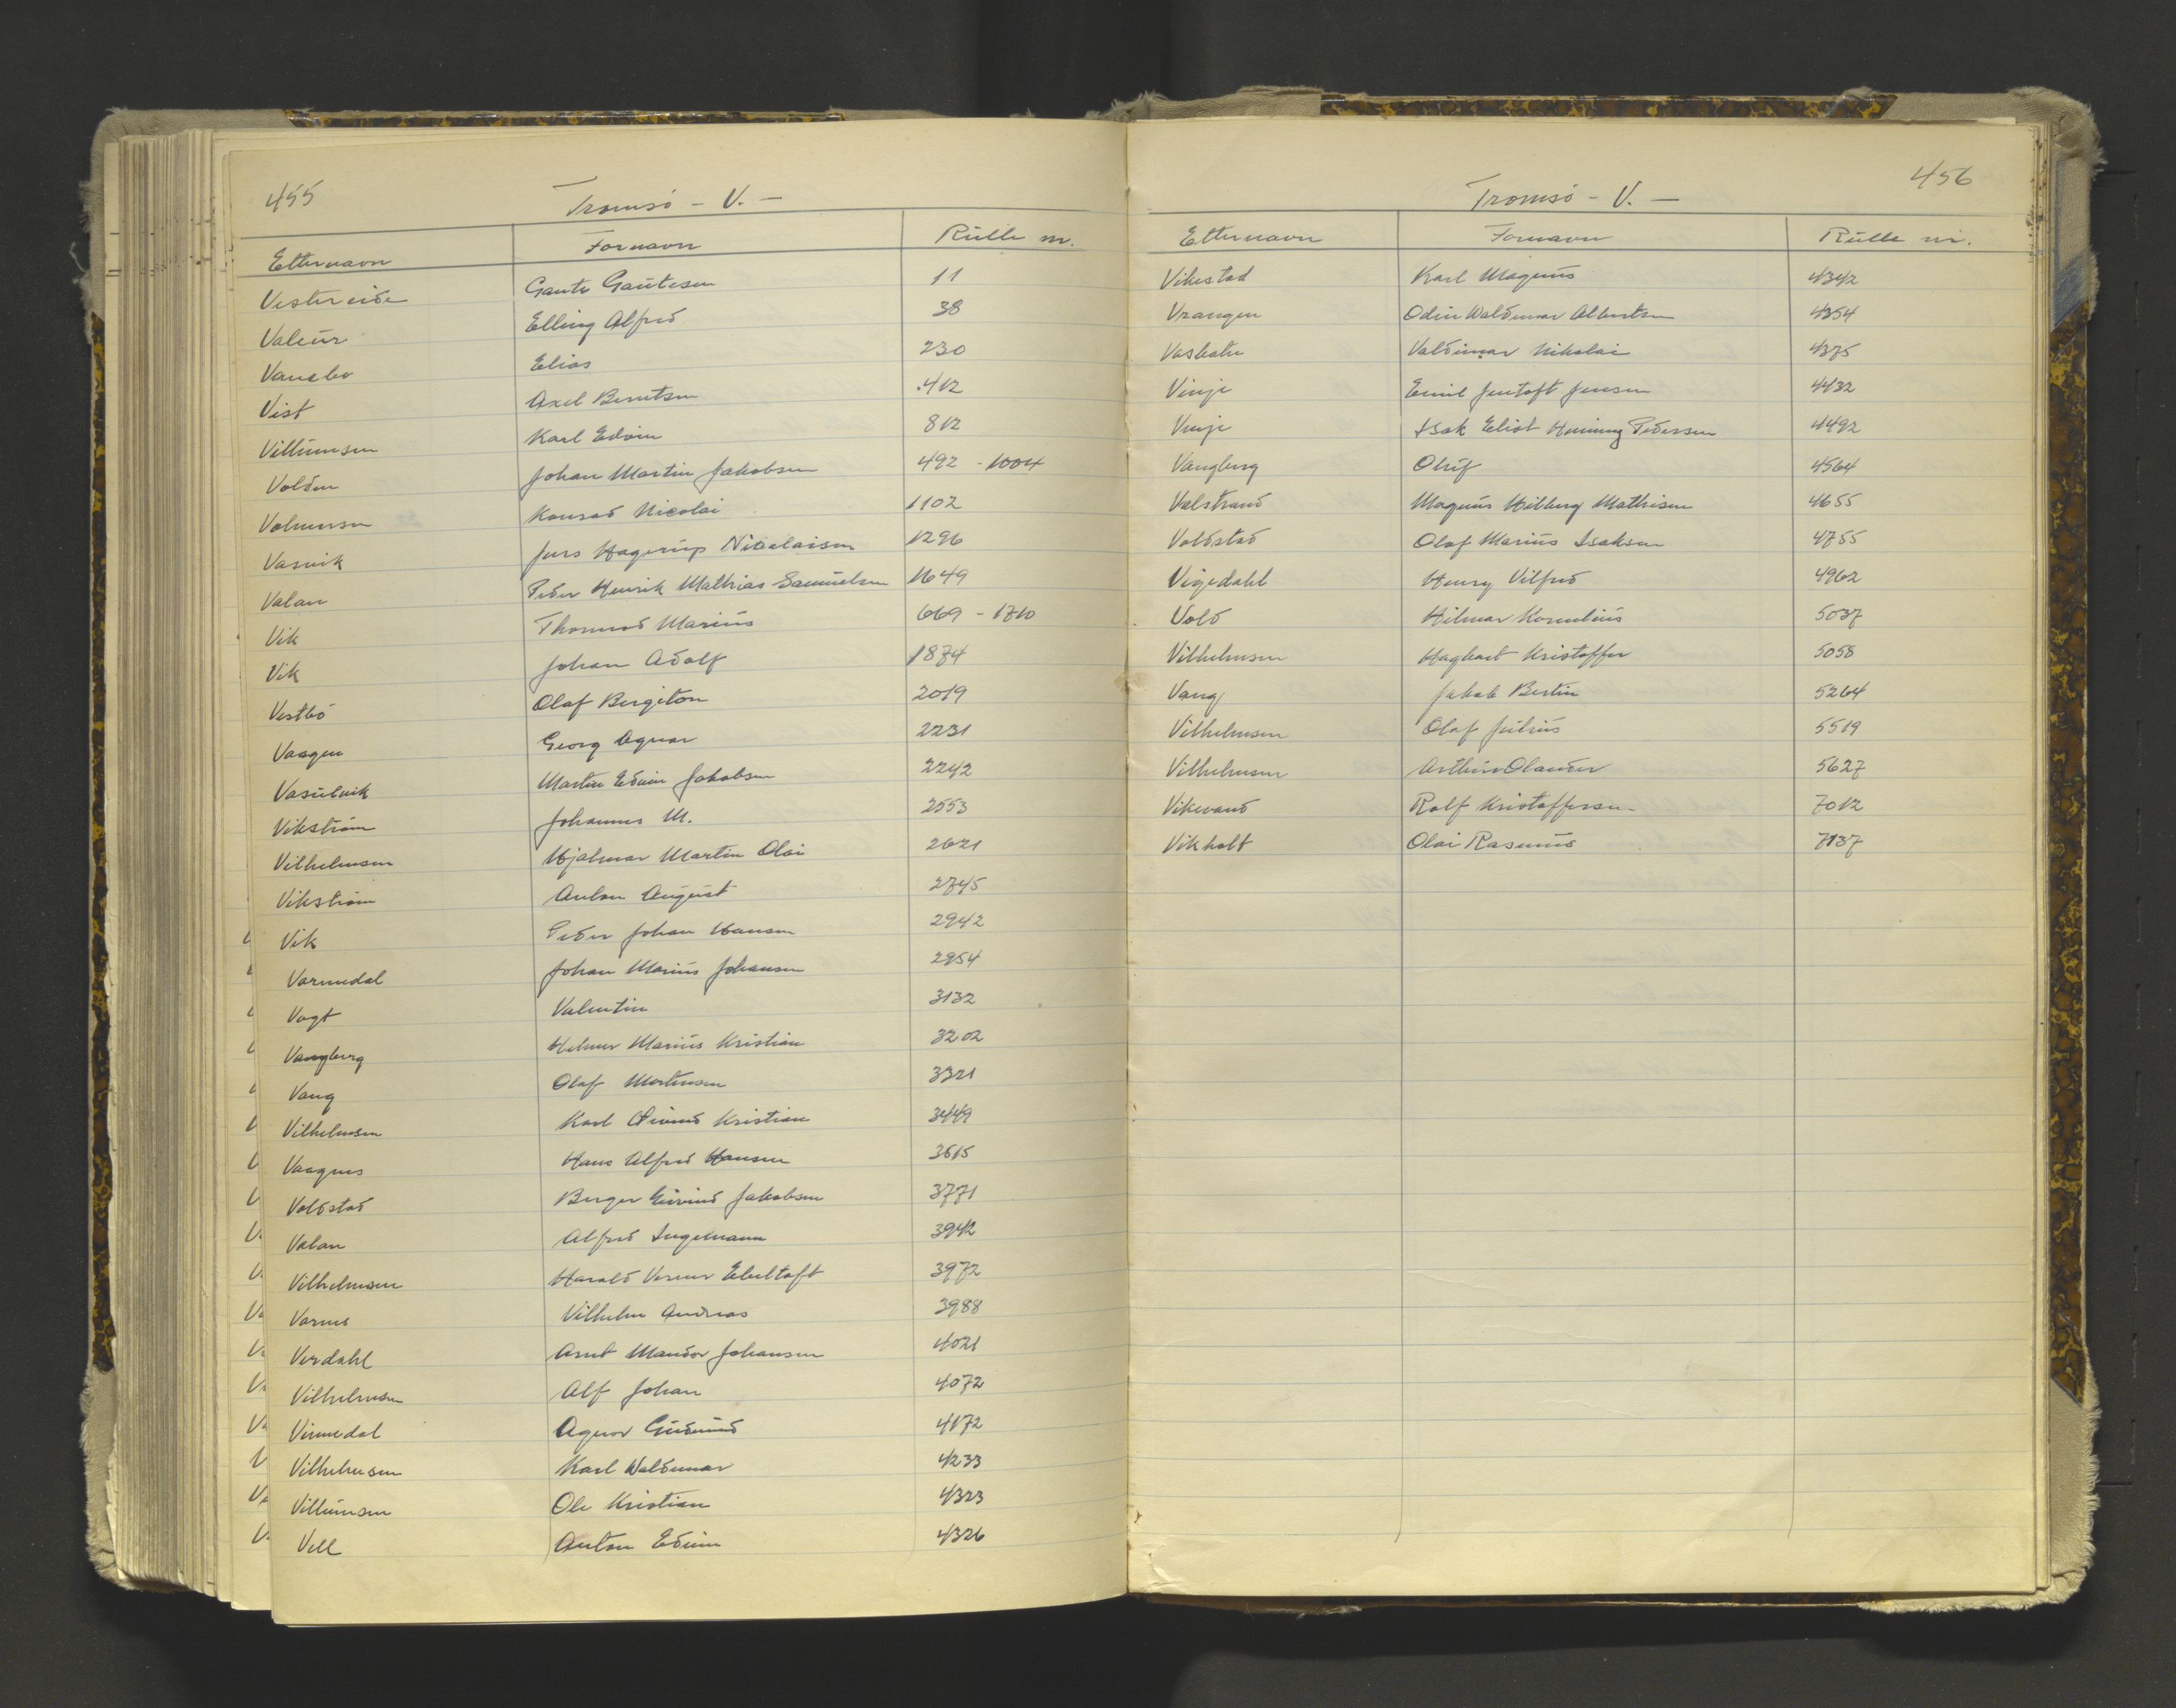 455
Tromsö - V. -
Etternavn Fornavn Rulle nr.
Vestereide Gaute Gautesen 11
Valeur Elling Alfred 38
Vangbo Elias 230
Vist Axel Berntsen 412
Villumsen Karl Edvin 812
Volden Johan Martin Jakobsen 492 - 1004
Volmersen Konrad Nicolai 1102
Vasvik Jens Hagerup Nicolaisen 1296
Valan Peder Henrik Mathias Samuelsen 1649
Vik Thomas Marius 669 - 1710
Vik Johan Adolf 1874
Vestbö Olaf Bergiton 2019
Vaagen Georg Agnar 2231
Martin Edvin Jakobsen 2242
Vikström Johannes M. 2553
Vilhelmsen Hjalmar Martin Olai 2621
Vikström Anton August 2745
Vik Peder Johan Hansen 2942
Varmedal Johan Marius Johansen 2954
Vogt Valentin 3132
Vangberg Helmer Marius Kristian 3202
Vang Olaf Mortensen 3321
Vilhelmsen Karl Kristian 3449
Vaagnes Hans Alfred Hansen 3615
Voldstad Berger Eivind Jakobsen 3771
Valan Alfred Ingemann 3942
Vilhelmsen Harald Verner Ebeltoft 3972
Varnes Vilhelm Andreas 3988
Verdahl Arnt Mandor Johansen 4021
Vilhelmsen Alf Johan 4072
Vinnedal Agnor Gudmund 4172
Vilhelmsen Karl Waldemar 4233
Villumsen Ole Kristian 4323
Vell Anton Edvin 4326
456
Tromsö - V. -
Etternavn Fornavn Rulle nr.
Vikestad Karl Magnus 4342
Vrangen Odin Waldemar Albertsen 4354
Vasbotn Valdimar Nikolai 4375
Vinje Emil Jentoft Jensen 4432
Vinje Isak Eliot Henning Pedersen 4492
Vangberg Oluf 4564
Valstrand Magnus Hilberg Mathisen 4655
Voldstad Olaf Marius Isaksen 4755
Vigedahl Henry Vilfred 4962
Vold Hilmar Kornelius 5037
Vilhelmsen Hagbart Kristoffer 5058
Vang Jakob Bertin 5264
Vilhelmsen Olaf Julius 5519
Vilhelmsen Arthur Olander 5627
Vikevand Rolf Kristoffersen 7012
Vikholt Olai Rasmus 7137